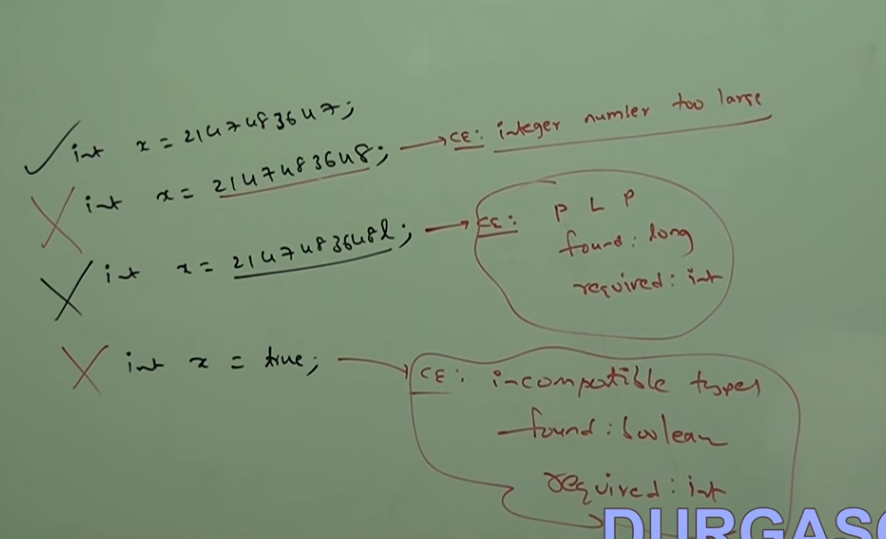 int x = 2147483647;
int x = 2147483648; → CE: integer number too large
int x = 2147483648l; → CE: P L P
found: long
required: int
int x = true; → CE: incompatible types
found: boolean
required: int
DURGASO